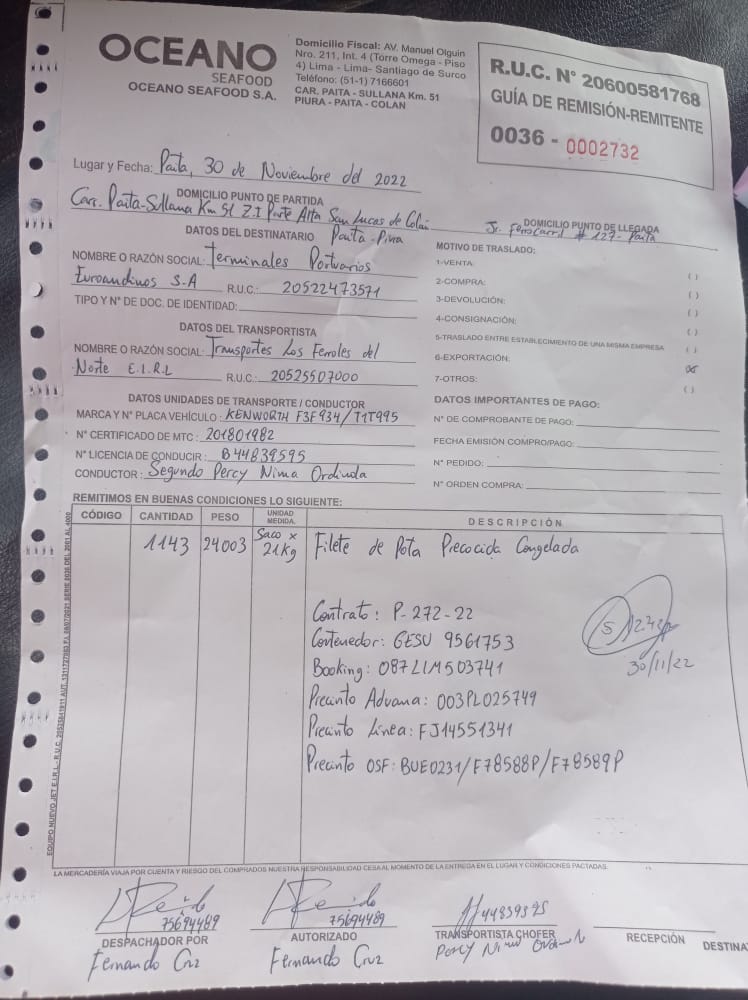 OCEANO
SEAFOOD
OCEANO SEAFOOD S.A.
Domicilio Fiscal: AV. Manuel Olguin
Nro. 211, Int. 4 (Torre Omega - Piso
4) Lima - Lima- Santiago de Surco
Teléfono: (51-1) 7166601
CAR. PAITA - SULLANA Km. 51
PIURA - PAITA - COLAN
R.U.C. N° 20600581768
GUÍA DE REMISIÓN-REMITENTE
0036 - 0002732
Lugar y Fecha: Paita, 30 de Noviembre del 2022
DOMICILIO PUNTO DE PARTIDA
Carr. Paita-Sullana Km 51 Z.I Parte Alta San Lucas de Colán
Paita-Piura
DOMICILIO PUNTO DE LLEGADA
Jr. Ferrocarril # 127- Paita
DATOS DEL DESTINATARIO
NOMBRE O RAZÓN SOCIAL: Terminales Portuarios
Euroandinos S.A R.U.C.: 20522473571
TIPO Y N° DE DOC. DE IDENTIDAD:
DATOS DEL TRANSPORTISTA
NOMBRE O RAZÓN SOCIAL: Transportes Los Ferroles del
Norte E.I.R.L R.U.C.: 20525507000
DATOS UNIDADES DE TRANSPORTE / CONDUCTOR
MARCA Y N° PLACA VEHÍCULO: KENWORTH F3F934/T1T995
N° CERTIFICADO DE MTC: 201801982
N° LICENCIA DE CONDUCIR: B44839595
CONDUCTOR: Segundo Percy Nima Ordinola
MOTIVO DE TRASLADO:
1-VENTA: ( )
2-COMPRA: ( )
3-DEVOLUCIÓN: ( )
4-CONSIGNACIÓN: ( )
5-TRASLADO ENTRE ESTABLECIMIENTO DE UNA MISMA EMPRESA ( )
6-EXPORTACIÓN: (X)
7-OTROS: ( )
DATOS IMPORTANTES DE PAGO:
N° DE COMPROBANTE DE PAGO:
FECHA EMISIÓN COMPRO/PAGO:
N° PEDIDO:
N° ORDEN COMPRA:
REMITIMOS EN BUENAS CONDICIONES LO SIGUIENTE:
CÓDIGO CANTIDAD PESO UNIDAD MEDIDA. DESCRIPCIÓN
1143 24003 Saco x 21Kg Filete de Pota Precocida Congelada
Contrato: P-272-22
Contenedor: GESU 9561753
Booking: 087LIM503741
Precinto Aduana: 003PL025749
Precinto Linea: FJ14551341
Precinto OSF: BUE0231/F78588P/F78589P
30/11/22
LA MERCADERÍA VIAJA POR CUENTA Y RIESGO DEL COMPRADOS NUESTRA RESPONSABILIDAD CESA AL MOMENTO DE LA ENTREGA EN EL LUGAR Y CONDICIONES PACTADAS.
75694489
DESPACHADOR POR
Fernando Cruz
75694489
AUTORIZADO
Fernando Cruz
TRANSPORTISTA CHOFER
Percy Nima Ordinola
RECEPCIÓN
DESTINA